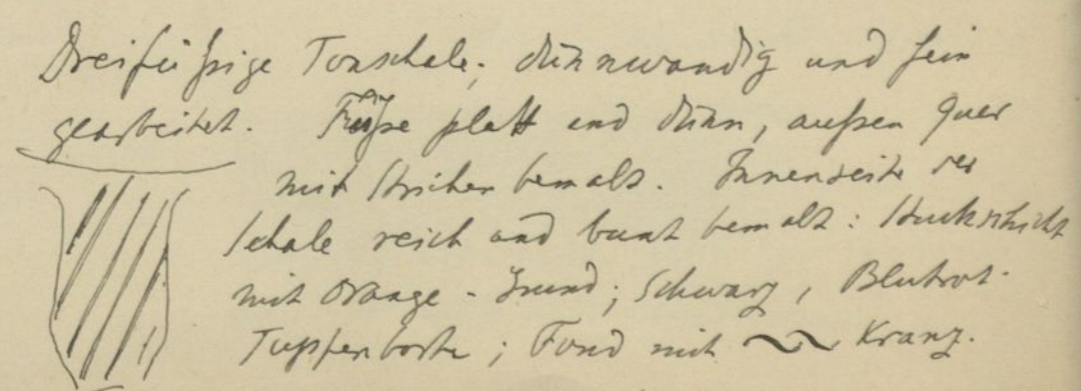 Dreifüßige Tonschale; dünnwandig und fein
gearbeitet. Füße platt und dünn, außen quer
mit Strichen bemalt. Innenseite der
Schale reich und bunt bemalt: Stuckschicht
mit Orange-Grund; Schwarz, Blutrot.
Tupfenborte; Fond mit Kranz.